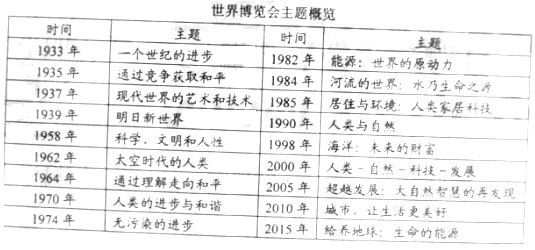 世界博览会主题概览
时间 主题 时间 主题
1933 年 一个世纪的进步 1982 年 能源：世界的原动力
1935 年 通过竞争获取和平 1984 年 河流的世界：水乃生命之源
1937 年 现代世界的艺术和技术 1985 年 居住与环境：人类家居科技
1939 年 明日新世界 1990 年 人类与自然
1958 年 科学、文明和人性 1998 年 海洋：未来的财富
1962 年 太空时代的人类 2000 年 人类－自然－科技－发展
1964 年 通过理解走向和平 2005 年 超越发展：大自然智慧的再发现
1970 年 人类的进步与和谐 2010 年 城市，让生活更美好
1974 年 无污染的进步 2015 年 给养地球：生命的能源